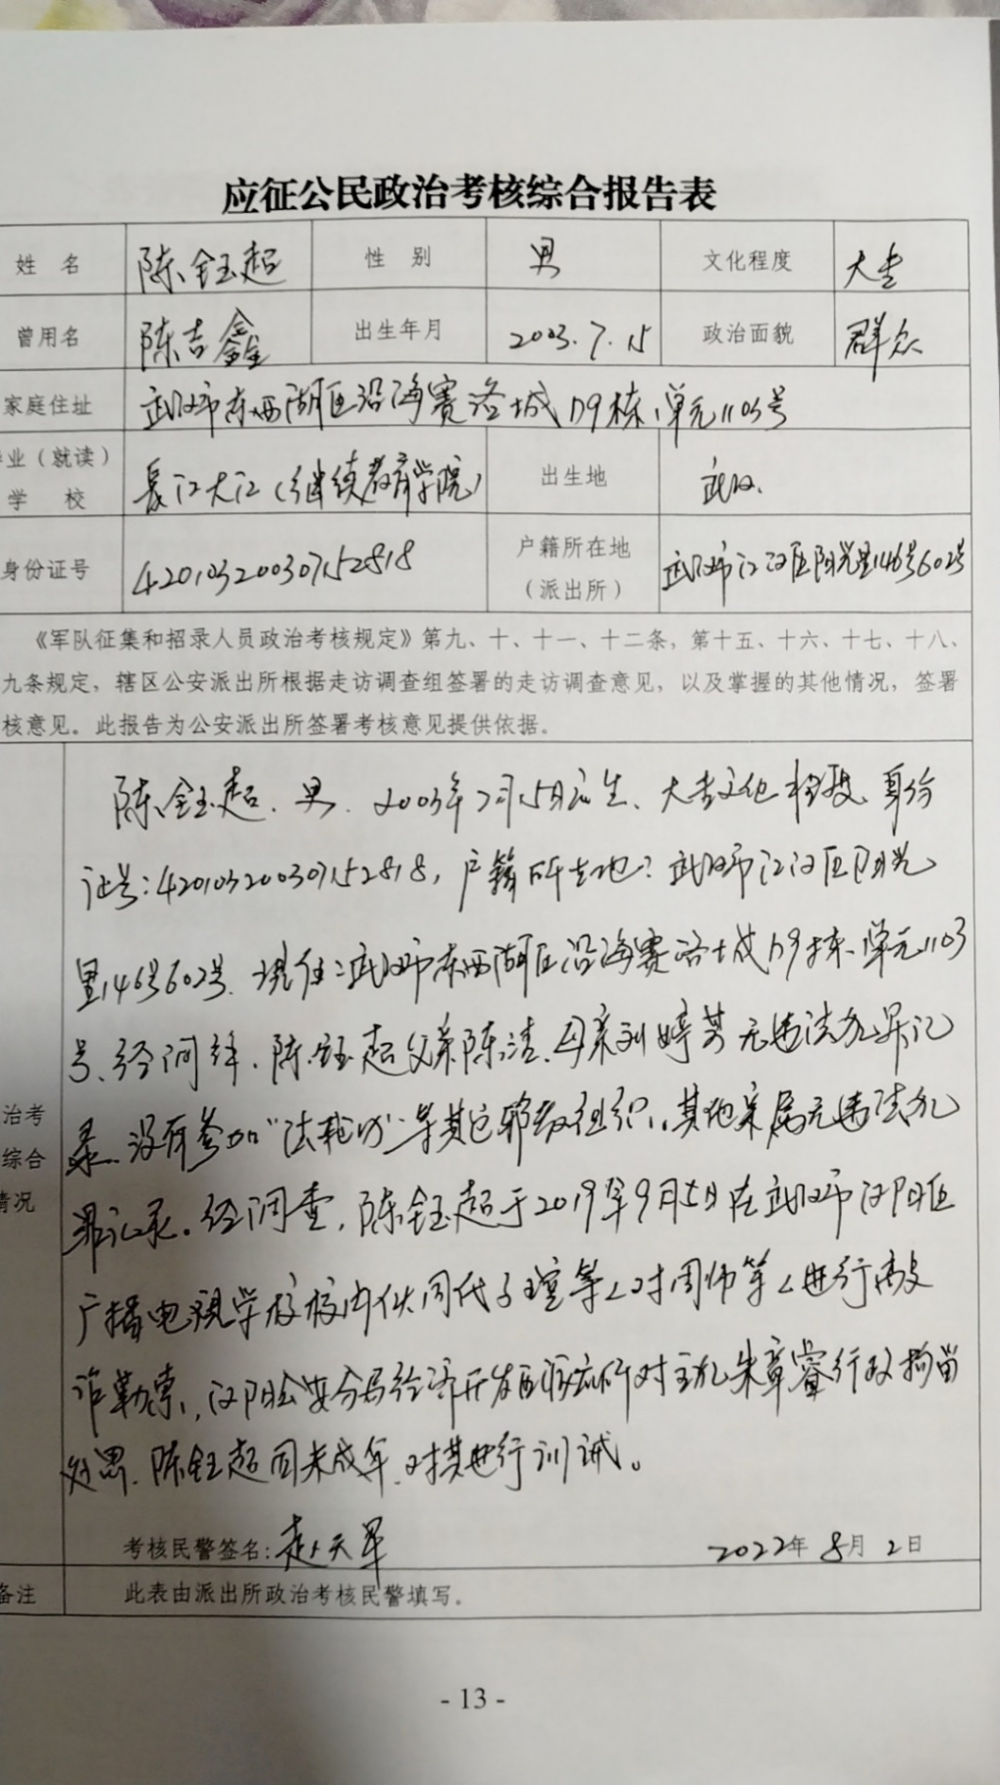 应征公民政治考核综合报告表
姓 名 陈钰超 性 别 男 文化程度 大专
曾用名 陈吉鑫 出生年月 2003.7.15 政治面貌 群众
家庭住址 武汉市东西湖区沿海赛洛城179栋1单元1103号
业（就读）
学 校 长江大江（继续教育学院） 出生地 武汉.
身份证号 420103200307152818 户籍所在地
（派出所） 武汉市江汉区阳光里146号602号
《军队征集和招录人员政治考核规定》第九、十、十一、十二条，第十五、十六、十七、十八、
九条规定，辖区公安派出所根据走访调查组签署的走访调查意见，以及掌握的其他情况，签署
核意见。此报告为公安派出所签署考核意见提供依据。
治考
综合
情况
陈钰超、男、2003年7月15日出生、大专文化程度、身份
证号：420103200307152818，户籍所在地：武汉市江汉区阳光
里146号602号、现住：武汉市东西湖区沿海赛洛城179栋1单元1103
号、经调查、陈钰超父亲陈洁、母亲刘婷芳无违法犯罪记
录、没有参加“法轮功”等其它邪教组织。其他家属无违法犯
罪记录。经调查，陈钰超于2019年9月5日在武汉市汉阳区
广播电视学校校内伙同代子瑄等人对周帅等人进行敲
诈勒索，汉阳公安分局经济开发区派出所对主犯朱章睿行政拘留
处罚、陈钰超因未成年、对其进行训诫。
考核民警签名：赵天军 2022年 8月 2日
备注 此表由派出所政治考核民警填写。
- 13 -